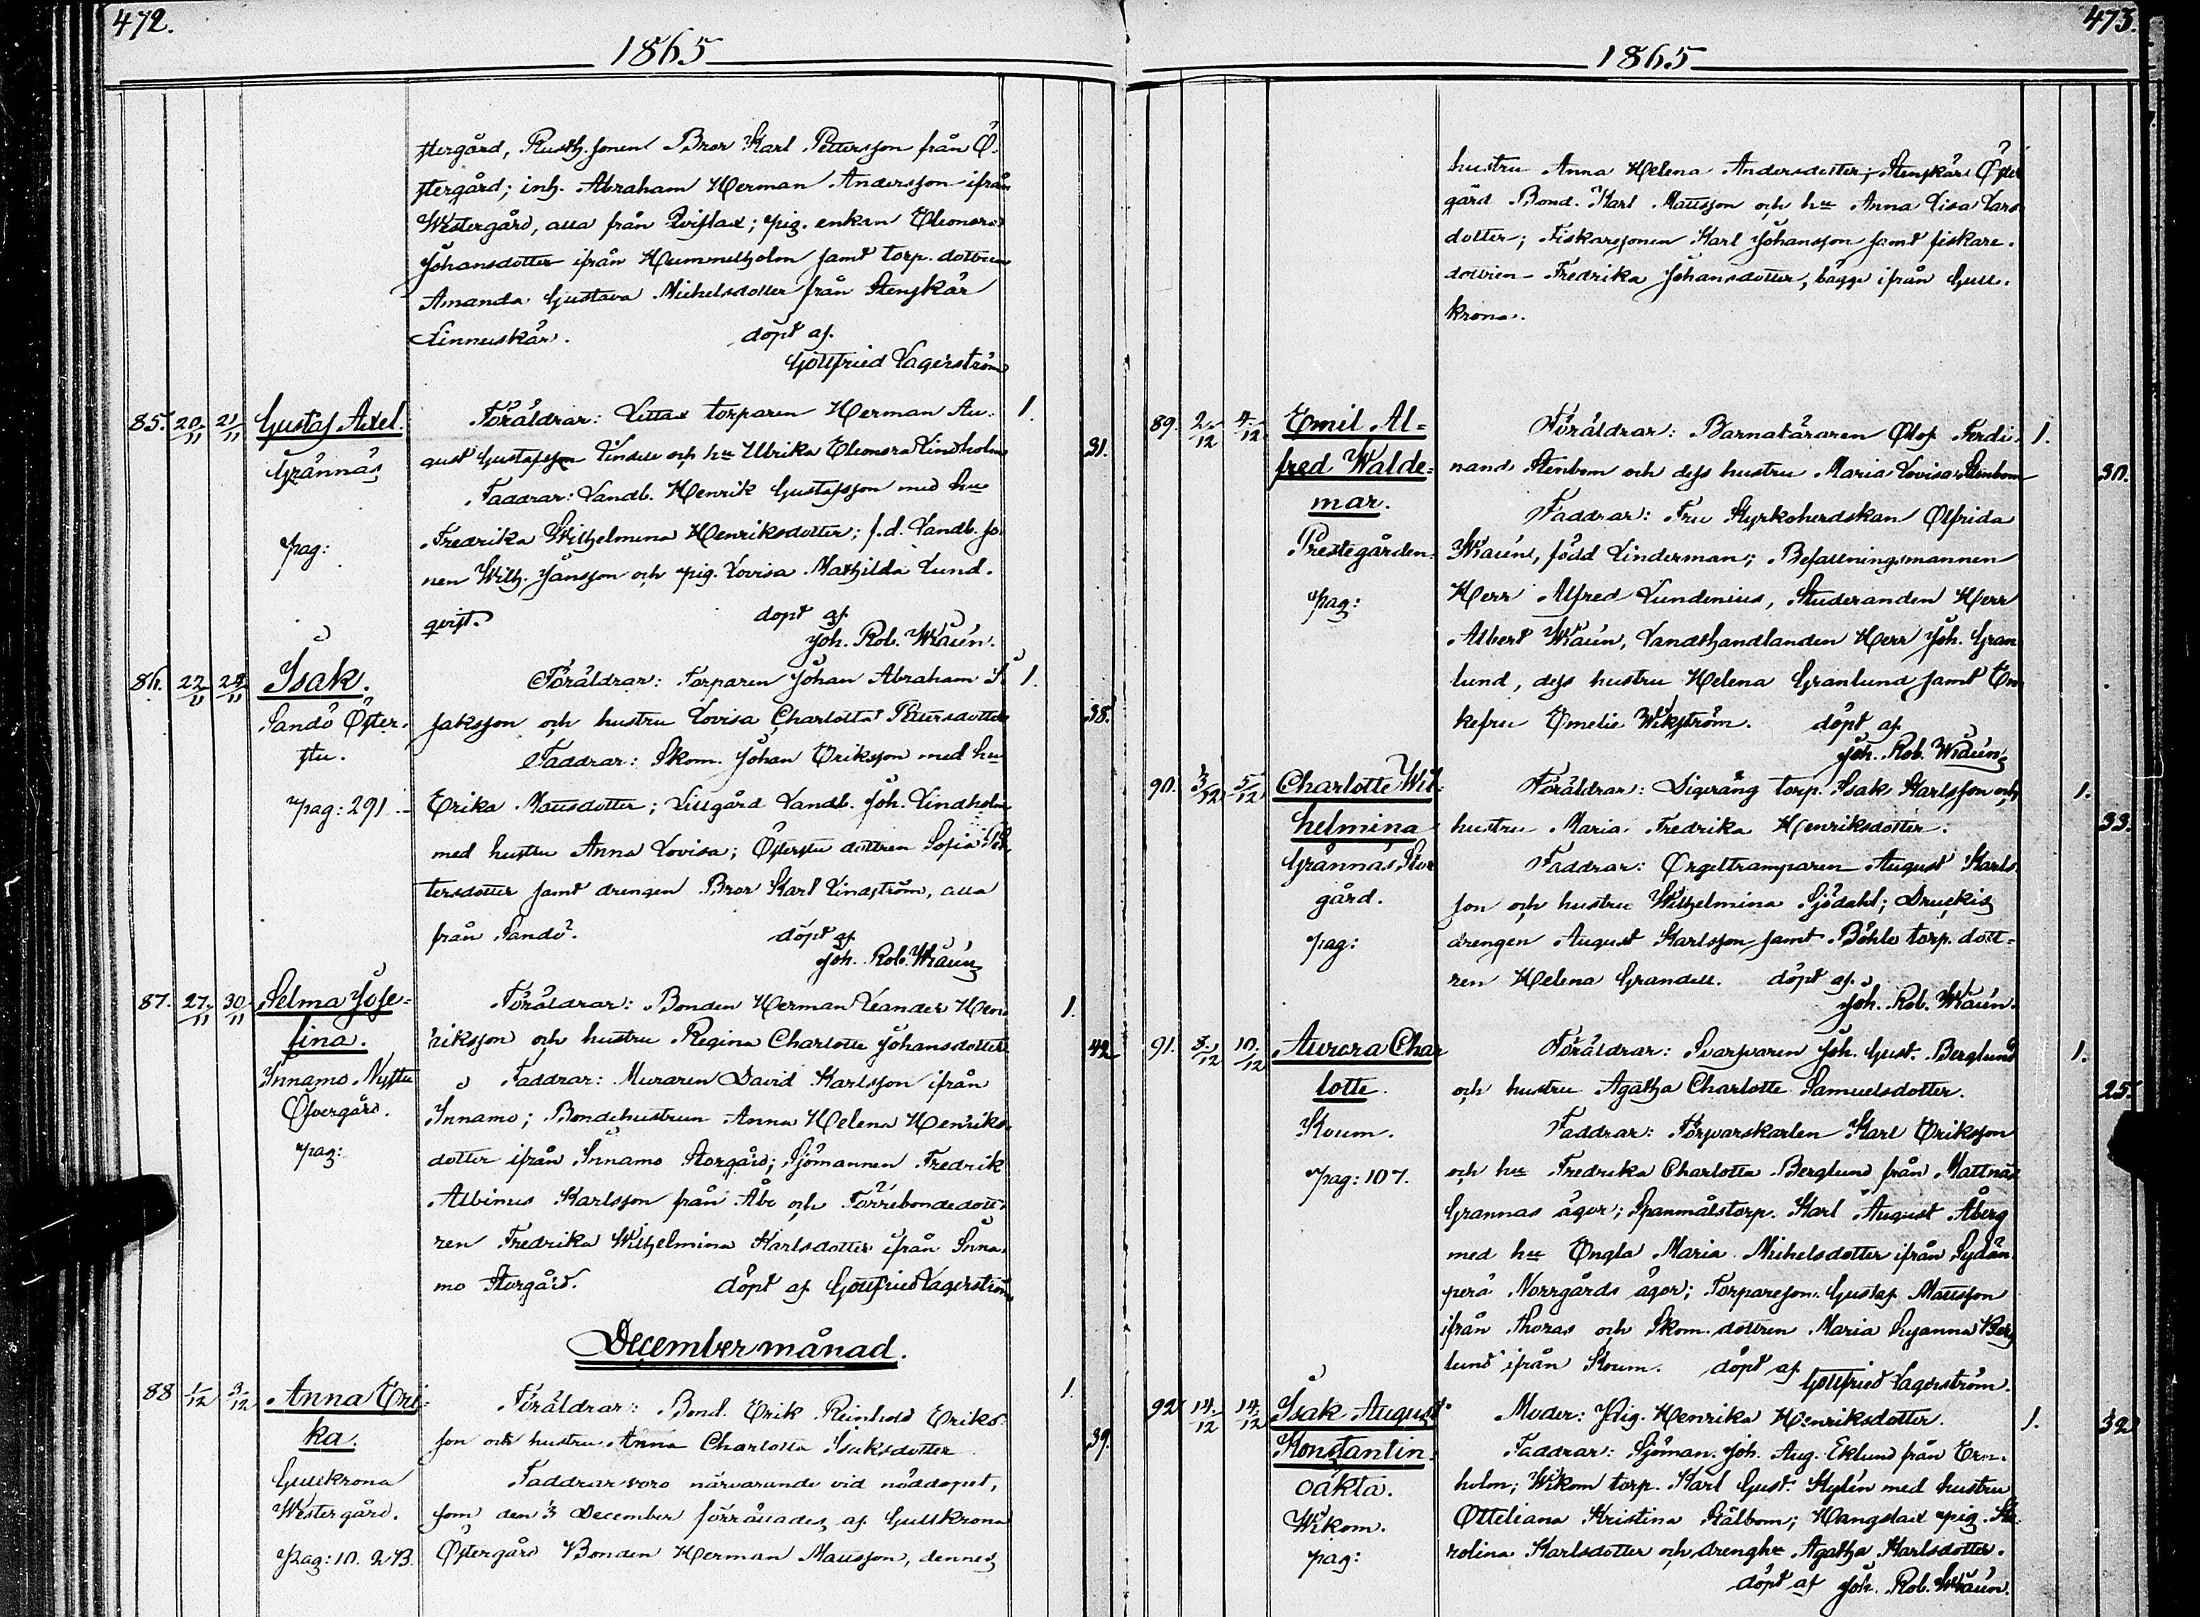 472.
1865
stergård, Rusth. sonen Bror Karl Pettersson från Ö-
stergård; inh. Abraham Herman Andersson ifrån
Westergård, alla från Qvislax; pig. enkan Eleonora
Johansdotter ifrån Hummelholm samt torp. dottren
Amanda Gustava Michelsdotter från Stenskär
Linnuskär. döpt af.
Gottfried Lagerström
85. 20/11 21/11 Gustaf Axel. Föräldrar: Littax torparen Herman Au- 1.
gust Gustafsson Lindell och h:u Ulrika Eleonora Lindholm 31.
Grännäs
Faddrar: Landb. Henrik Gustafsson med hu
Fredrika Wilhelmina Henriksdotter; f.d. Landb. so-
pag:
nen Wilh. Jansson och pig. Lovisa Mathilda Lund-
qvist. döpt af
Joh. Rob. Wraún.
86. 22/11 24/11 Isak. Föräldrar: Torparen Johan Abraham I- 1.
Sandö Öster- saksson och hustru Lovisa Charlotta Pettersdotter 38.
stu. Faddrar: Skom. Johan Eriksson med hu
pag: 291 Erika Mausdotter; Lillgård Landb. Joh. Lindholm
med hustru Anna Lovisa; Österstu dottren Sofia Pet-
tersdotter samt drengen Bror Karl Lindström, alla
från Sandö. döpt af
Joh. Rob. Wraún
87. 27/11 30/11 Selma Jose- Föräldrar: Bonden Herman Leander Hen- 1.
fina. riksson och hustru Regina Charlotte Johansdotter 42
Innamo Nystu Faddrar: Muraren David Karlsson ifrån
Öfvergård. Innamo; Bondehustrun Anna Helena Henriks-
pag: dotter ifrån Innamo Storgård; Sjömannen Fredrik
Albinus Karlsson från Åbo och Förrebondedott-
ren Fredrika Wilhelmina Karlsdotter ifrån Inna-
mo Storgård. döpt af Gottfried Lagerström
December månad.
88 1/12 3/12 Anna Eri- Föräldrar: Bond. Erik Reinhold Eriks- 1.
ka. son och hustru Anna Charlotta Isaksdotter 39.
Gullkrona Faddrar voro närvarande vid nöddopet,
Westergård. som den 3 December förrättades af Gullkrona
pag: 10. 273. Östergård Bonden Herman Mausson, dennes
473.
1865
hustru Anna Helena Andersdotter; Stenskär Öster
gård Bond. Karl Mausson och h:u Anna Lisa Lars-
dotter; Fiskaresonen Karl Johansson samt fiskare-
dottren Fredrika Johansdotter, bägge ifrån Gull-
krona.
89. 2/12 4/12 Emil Al- Föräldrar: Barnaläraren Olof Ferdi- 1.
fred Walde- nand Stenbom och dess hustru Maria Lovisa Stenbom 30.
mar. Faddrar: Fru Kyrkoherdskan Olfrida
Prestegården. Wraún, född Linderman; Befallningsmannen
pag: Herr Alfred Lundenius, Studeranden Herr
Albert Wraún, Landthandlanden Herr Joh. Gran-
lund, dess hustru Helena Granlund samt En-
kefru Emelie Wikström. döpt af
Joh. Rob. Wraún
90. 3/12 5/12 Charlotte Wil- Föräldrar: Ligeräng torp. Isak Karlsson och 1.
helmina hustru Maria Fredrika Henriksdotter. 33.
Grännäs Stor Faddrar: Orgeltramparen August Karls-
gård. son och hustru Wilhelmina Sjödahl; Druckis
pag: drengen August Karlsson samt Böhle torp. dott-
ren Helena Grandell. döpt af.
Joh. Rob. Wraún.
91. 8/12 10/12 Aurora Char Föräldrar: Svarfvaren Joh. Gust. Berglund 1.
lotte och hustru Agatha Charlotte Samuelsdotter. 25.
Koum. Faddrar: Förvarskarlen Karl Eriksson
pag: 107. och h:u Fredrika Charlotta Berglund från Mattnäs
Grannas ägor; Spanmålstorp. Karl August Åberg
med h:u Engla Maria Michelsdotter ifrån Sydän-
perä Norrgårds ägor; Torpareson. Gustaf Mausson
ifrån och Skom. dottren Maria Susanna Berg
lund ifrån Koum. döpt af
Gottfried Lagerström.
92 14/12 14/12 Isak August Moder: Pig. Henrika Henriksdotter. 1. 32
Konstantin. Faddrar: Sjöman. Joh. Aug. Eklund från Ern-
oäkta. holm; Wikom torp. Karl Gust. Kylén med hustru
Wikom. Otteliana Kristina Stålbom; Wangslax pig. Ka-
pag: rolina Karlsdotter och drengh:u Agatha Karlsdotter.
döpt af Joh. Rob. Wraún.